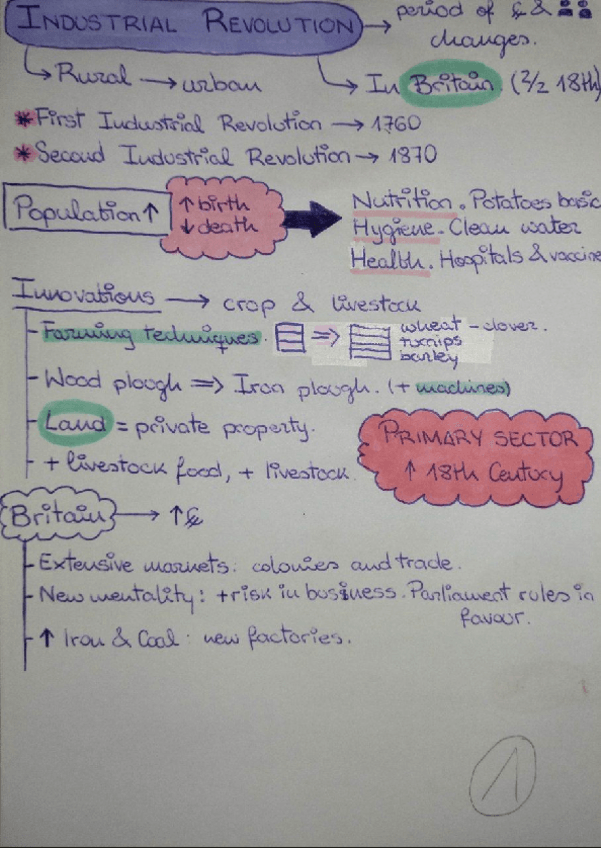 INDUSTRIAL REVOLUTION → period of £ &
changes.
↳ Rural → urban ↳ In Britain (2/2 18th)
*First Industrial Revolution → 1760
*Second Industrial Revolution → 1870
Population ↑ ↑ birth
↓ death
Nutrition. Potatoes basic
Hygiene. Clean water
Health. Hospitals & vaccine
Innovations → crop & livestock
- Farming techniques. ⇒ wheat - clover.
turnips
barley
- Wood plough ⇒ Iron plough. (+ machines)
- Land = private property.
- + livestock food, + livestock.
PRIMARY SECTOR
↑ 18th Century
Britain → ↑£
- Extensive markets: colonies and trade.
- New mentality: +risk in business. Parliament rules in
favour.
- ↑ Iron & Coal: new factories.
1